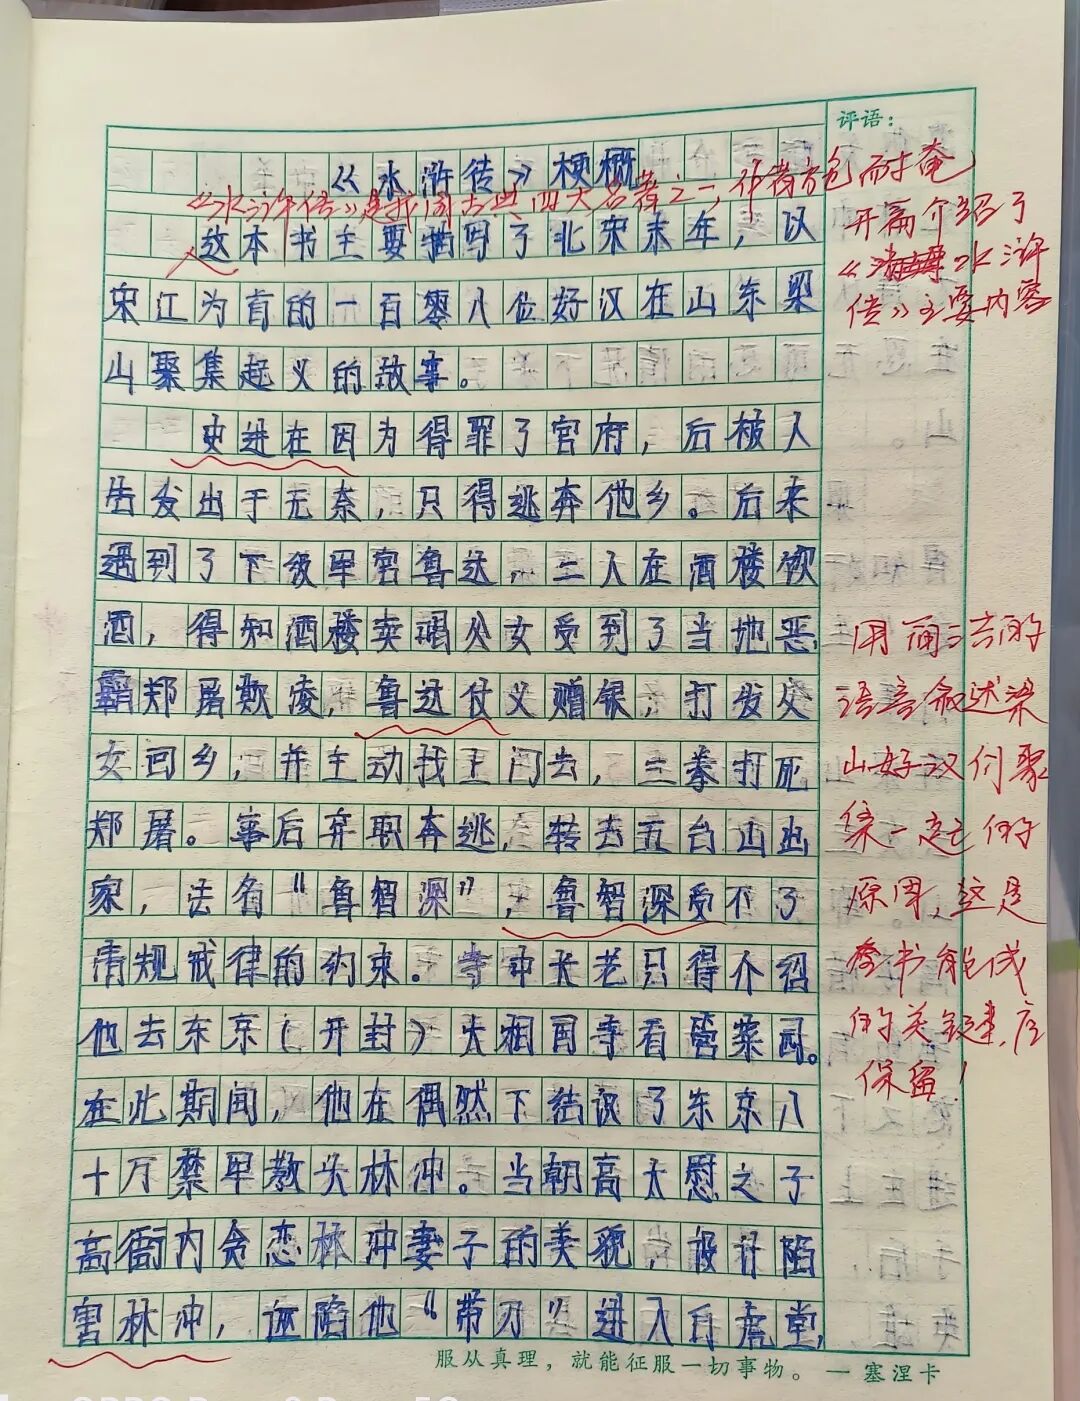 评语：
《水浒传》梗概
《水浒传》是我国古典四大名著之一，作者施耐庵
这本书主要描写了北宋末年，以
宋江为首的一百零八位好汉在山东梁
山聚集起义的故事。
史进在因为得罪了官府，后被人
告发出于无奈，只得逃奔他乡。后来
遇到了下级军官鲁达，三人在酒楼饮
酒，得知酒楼卖唱父女受到了当地恶
霸郑屠欺凌，鲁达仗义赠银，打发父
女回乡，并主动找上门去，三拳打死
郑屠。事后弃职奔逃，转去五台山出
家，法名“鲁智深”，鲁智深受不了
清规戒律的约束。寺中长老只得介绍
他去东京（开封）大相国寺看管菜园。
在此期间，他在偶然下结识了东京八
十万禁军教头林冲。当朝高太慰之子
高衙内贪恋林冲妻子的美貌，设计陷
害林冲，诬陷他“带刀”进入白虎堂，
开篇介绍了
《水浒
传》主要内容
用简洁的
语言叙述梁
山好汉们聚
集一起的
原因，这是
本书能成
的关键，应
保留！
服从真理，就能征服一切事物。一塞涅卡